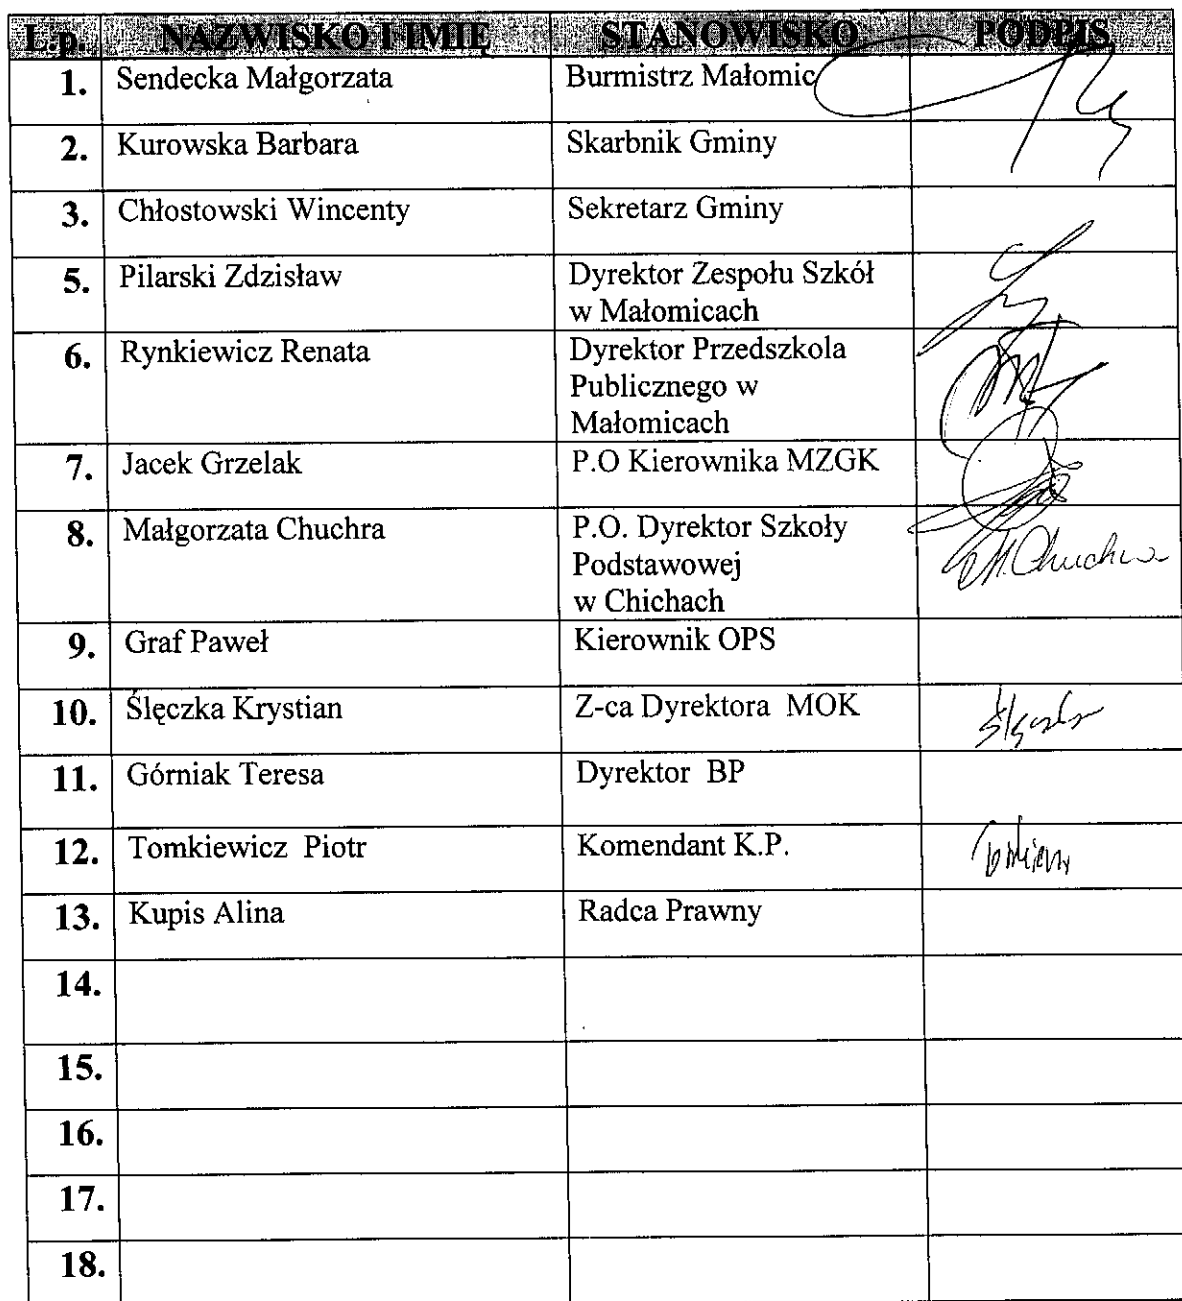 L.p. NAZWISKO I IMIĘ STANOWISKO PODPIS
1. Sendecka Małgorzata Burmistrz Małomic
2. Kurowska Barbara Skarbnik Gminy
3. Chłostowski Wincenty Sekretarz Gminy
5. Pilarski Zdzisław Dyrektor Zespołu Szkół
w Małomicach
6. Rynkiewicz Renata Dyrektor Przedszkola
Publicznego w
Małomicach
7. Jacek Grzelak P.O Kierownika MZGK
8. Małgorzata Chuchra P.O. Dyrektor Szkoły
Podstawowej M. Chuchra
w Chichach
9. Graf Paweł Kierownik OPS
10. Ślęczka Krystian Z-ca Dyrektora MOK
11. Górniak Teresa Dyrektor BP
12. Tomkiewicz Piotr Komendant K.P.
13. Kupis Alina Radca Prawny
14.
15.
16.
17.
18.